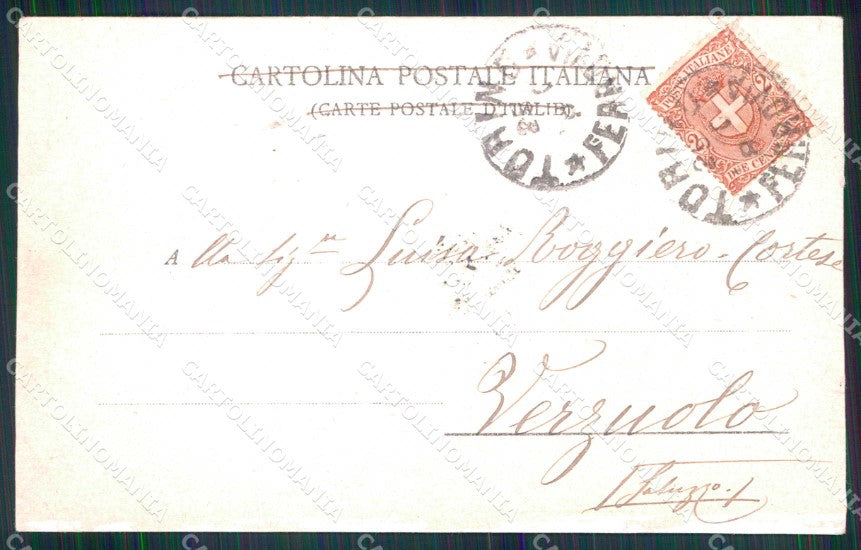 CARTOLINA POSTALE ITALIANA
(CARTE POSTALE D'ITALIE)
POSTE ITALIANE
DUE CENT
TORINO
FERROVIA
TORINO
FERROVIA
A lla Sigra Luisa Boggiero-Cortese
Verzuolo
(Saluzzo)
CARTOLINOMANIA